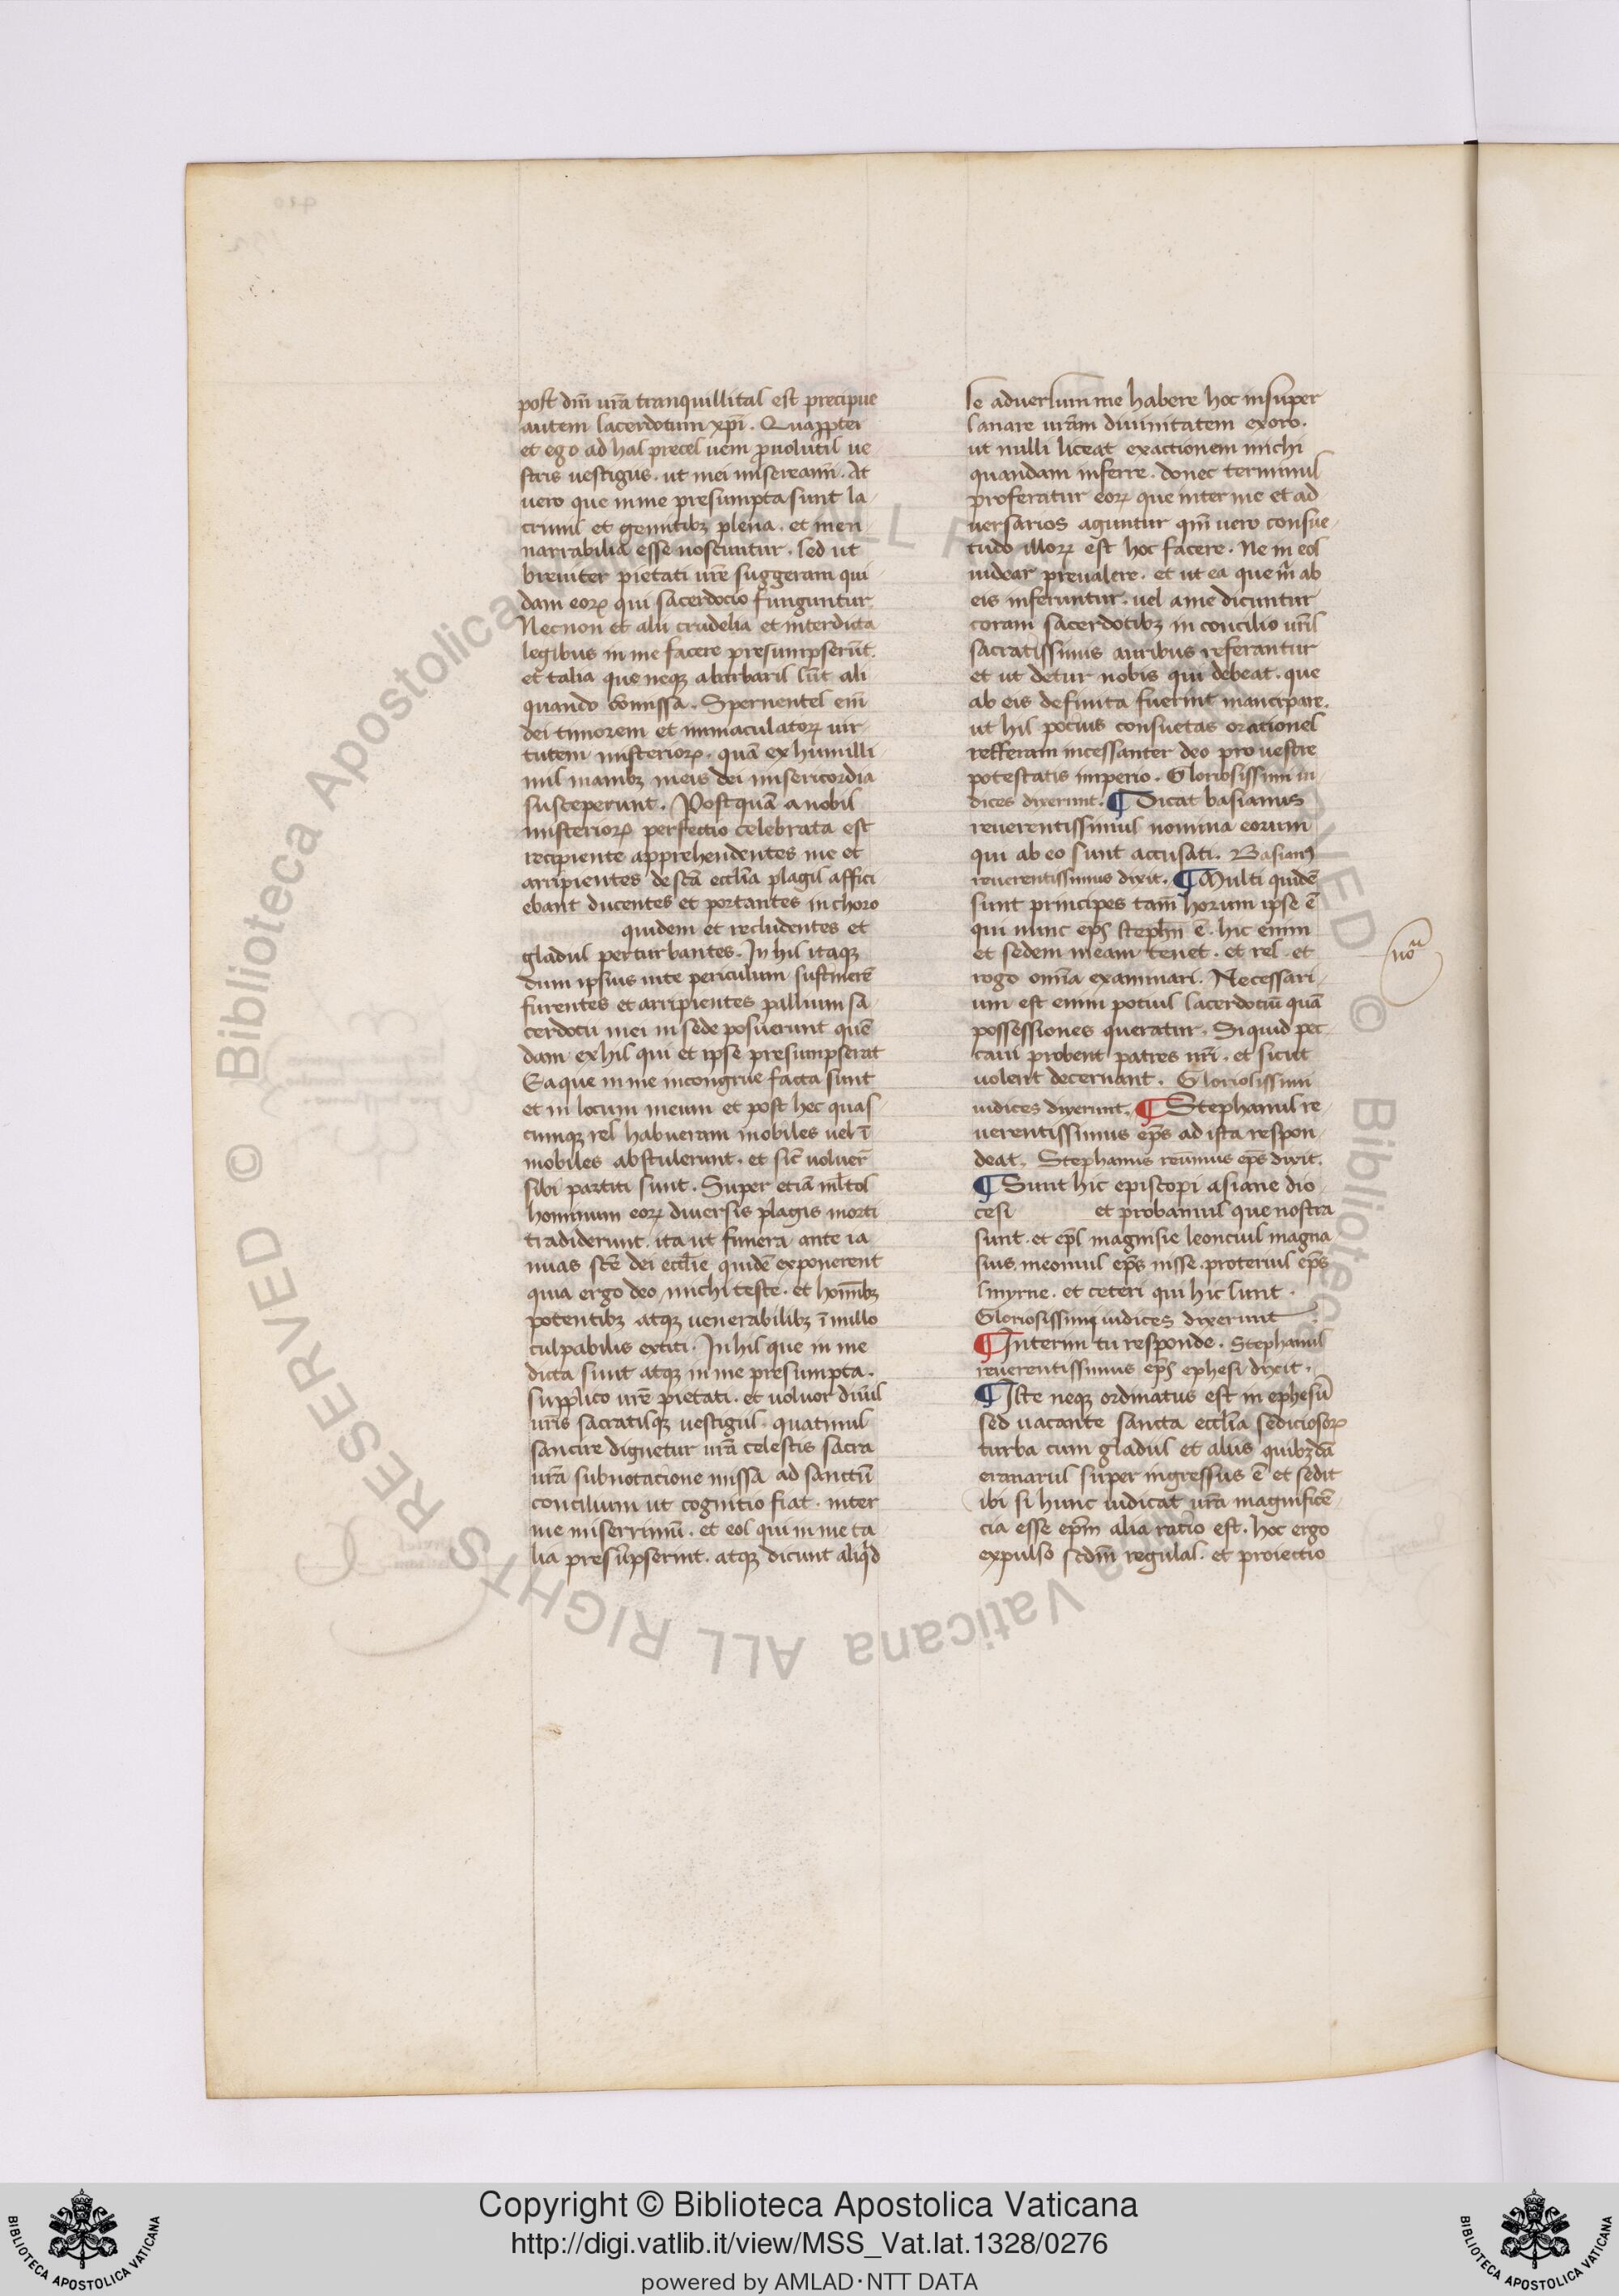 post dnm̄ vrā tranquillitas est precipue
autem sacerdotum xp̄i. Quapptei
et ego ad has preces uem ꝓuolutus ue
stris uestigijs. ut mei misereamī. At
uero que in me presumpta sunt la
crimis et gemitibꝫ plena. et inen
narrabilia esse noscuntur. sed ut
breuiter pietati vrē suggeram qui
dam eoꝝ qui sacerdocio funguntur
Necnon et alij crudelia et interdicta
legibus in me facere presumpserūt.
et talia que neqꝫ a barbaris sūt ali
quando cōmissa. Spernentes em̄
dei timorem et immaculatoꝝ uir
tutem misterioꝝ. quā ex humilli
mis manibꝫ meis dei misericordia
susceperunt. Postquā a nobis
misterioꝝ perfectio celebrata est
recipiente apprehendentes me et
arripientes de scā ecclīa plagis affici
ebant ducentes et portantes in choro
quidem et recludentes et
gladijs perturbantes. In his itaqꝫ
dum ipsius uite periculum sustinerē
furentes et arripientes pallium sa
cerdocij mei in sede posuerunt quē
dam ex his qui et ipse presumpserat
Ea que in me incongrue facta sunt
et in locum meum et post hec quas
cumqꝫ res habueram mobiles uel ī
mobiles abstulerunt. et sic̄ uoluer̄
sibi partiti sunt. Super etiā ml̄tos
hominum eoꝝ diuersis plagis morti
tradiderunt. ita ut funera ante ia
nuas scē dei ecclīe quidē exponerent
quia ergo deo michi teste. et homībꝫ
potentibꝫ atqꝫ uenerabilibꝫ ī nullo
culpabilis extiti. In his que in me
dicta sunt atqꝫ in me presumpta.
supplico vrē pietati. et uoluor diuīs
vrīs sacratisqꝫ uestigijs. quatinus
sancire dignetur vrā celestis sacra
vrā subnotacione missa ad sanctū
concilium ut cognitio fiat. inter
me miserrimū. et eos qui in me ta
lia presūpserint. atqꝫ dicunt aliqͥd
se aduersum me habere hoc insuper
sanare vrām diuinitatem exoro.
ut nulli liceat exactionem michi
quandam inferre. donec terminus
proferatur eoꝝ que inter me et ad
uersarios aguntur qm̄ uero consue
tudo illoꝝ est hoc facere. Ne in eos
uidear preualere. et ut ea que m̄ ab
eis inferuntur. uel a me dicuntur
coram sacerdotibꝫ in concilio vrīs
sacratissimis auribus referantur
et ut detur nobis qui debeat. que
ab eis definita fuerint mancipare.
ut his pocius consuetas orationes
refferam incessanter deo pro uestre
potestatis imperio. Gloriosissimi iu
dices dixerunt. ¶ Dicat basianus
reuerentissimus nomina eorum
qui ab eo sunt accusati. Basianꝰ
reuerentissimus dixit. ¶ Multi quidē
sunt principes tam̄ horum ipse ē
qui nunc ep̄s stephn̄ ē. hic enim
et sedem meam tenet. et res. et
rogo omīa examinari. Necessari
um est enim potius sacerdotiū quā
possessiones queratur. Si quid pec
caui probent patres nrī. et sicut
uolent decernant. Gloriosissimi
iudices dixerunt. ¶ Stephanus re
uerentissimus ep̄s ad ista respon
deat. Stephanus reūmus ep̄s dixit.
¶ Sunt hic episcopi asiane dio
cesi et probamus que nostra
sunt. et ep̄s magnisie leoncius magna
sius. meonius ep̄s nisse. proterius ep̄s
smyrne. et ceteri qui hic sunt.
Gloriosissimi iudices dixerunt
¶ Interim tu responde. Stephanus
reuerentissimus ep̄s ephesi dixit.
¶ Iste neqꝫ ordinatus est in ephesū
sed uacante sancta ecclīa sediciosoꝝ
turba cum gladijs et alijs quibꝫdā
eranarijs super ingressus ē et sedit
ibi si hunc iudicat vrā magnificē
cia esse ep̄m alia ratio est. hoc ergo
expulso scdm̄ regulas. et proiectio
noͣ
Copyright © Biblioteca Apostolica Vaticana
http://digi.vatlib.it/view/MSS_Vat.lat.1328/0276
powered by AMLAD·NTT DATA
BIBLIOTECA APOSTOLICA VATICANA
BIBLIOTECA APOSTOLICA VATICANA